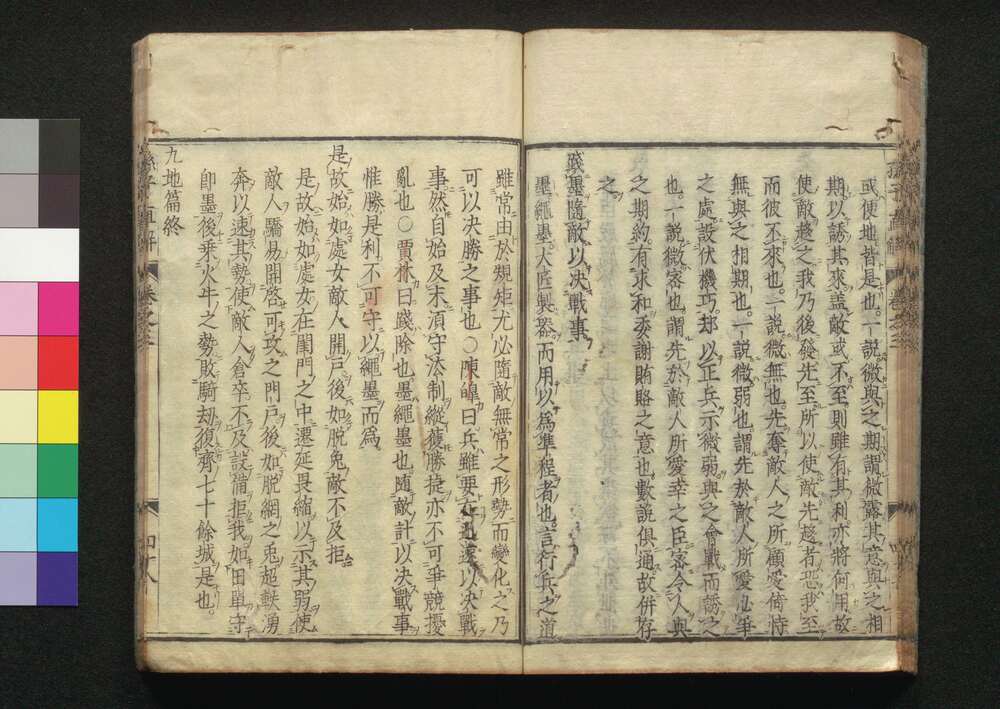 或使地皆是也一說微與之期謂微露其意與之相
期以誘其來盖敵或不至則雖有其利亦將何用故
使敵趍之我乃後發先至所以使敵先趍者恐我至
而彼不來也一說微無也先奪敵人之所顧愛倚恃
無與之相期也一說微弱也謂先於敵人所愛必爭
之處設伏機巧却以正兵示微弱與之會戰而誘之
也一說微客也謂先於敵人所愛幸之臣客令人與
之期約有求和委謝賄賂之意也數說俱通故併存
之
踐墨隨敵以决戰事
墨繩墨大匠製器而用以為準程者也言行兵之道
雖常由於規矩尤必隨敵無常之形勢而變化之乃
可以决勝之事也○陳皥曰兵雖要在迅速以决戰
事然自始及末湏守法制縱獲勝捷亦不可爭競擾
亂也○賈林曰踐除也墨繩墨也随敵計以决戰事
惟勝是利不可守以繩墨而為
是故始如處女敵人開戶後如脫兔敵不及拒
是故始如處女在閨門之中遷延畏縮以示其弱使
敵人驕易開啓可攻之門戶後如脫網之兎超軼湧
奔以速其勢使敵人倉卒不及設備拒我如田單守
卽墨後乗火牛之勢敗騎劫復齊七十餘城是也
九地篇終
孫子直解 卷之三 四十八